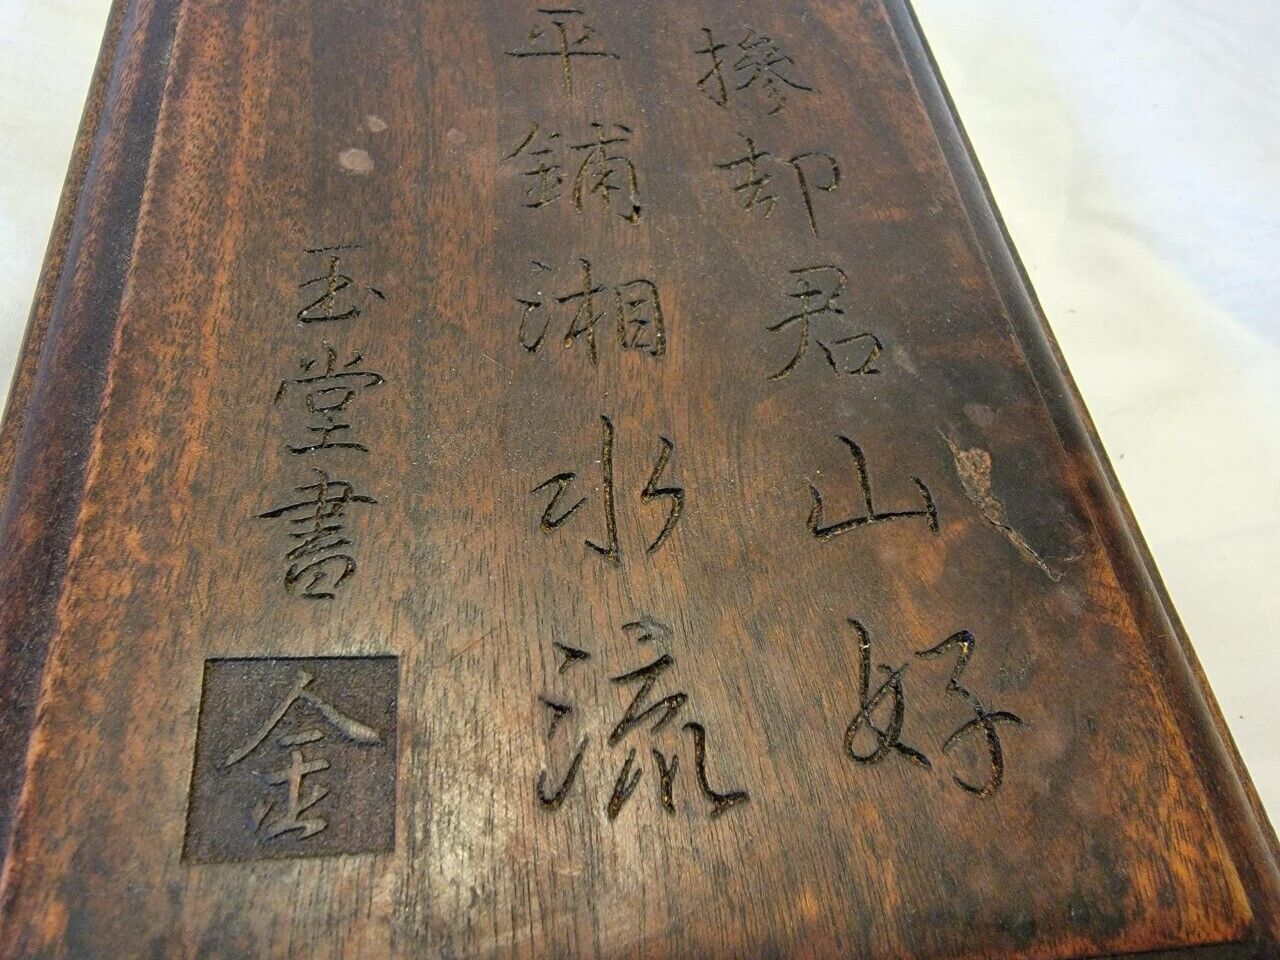 掺却君山好
平鋪湘水流
玉堂書
金